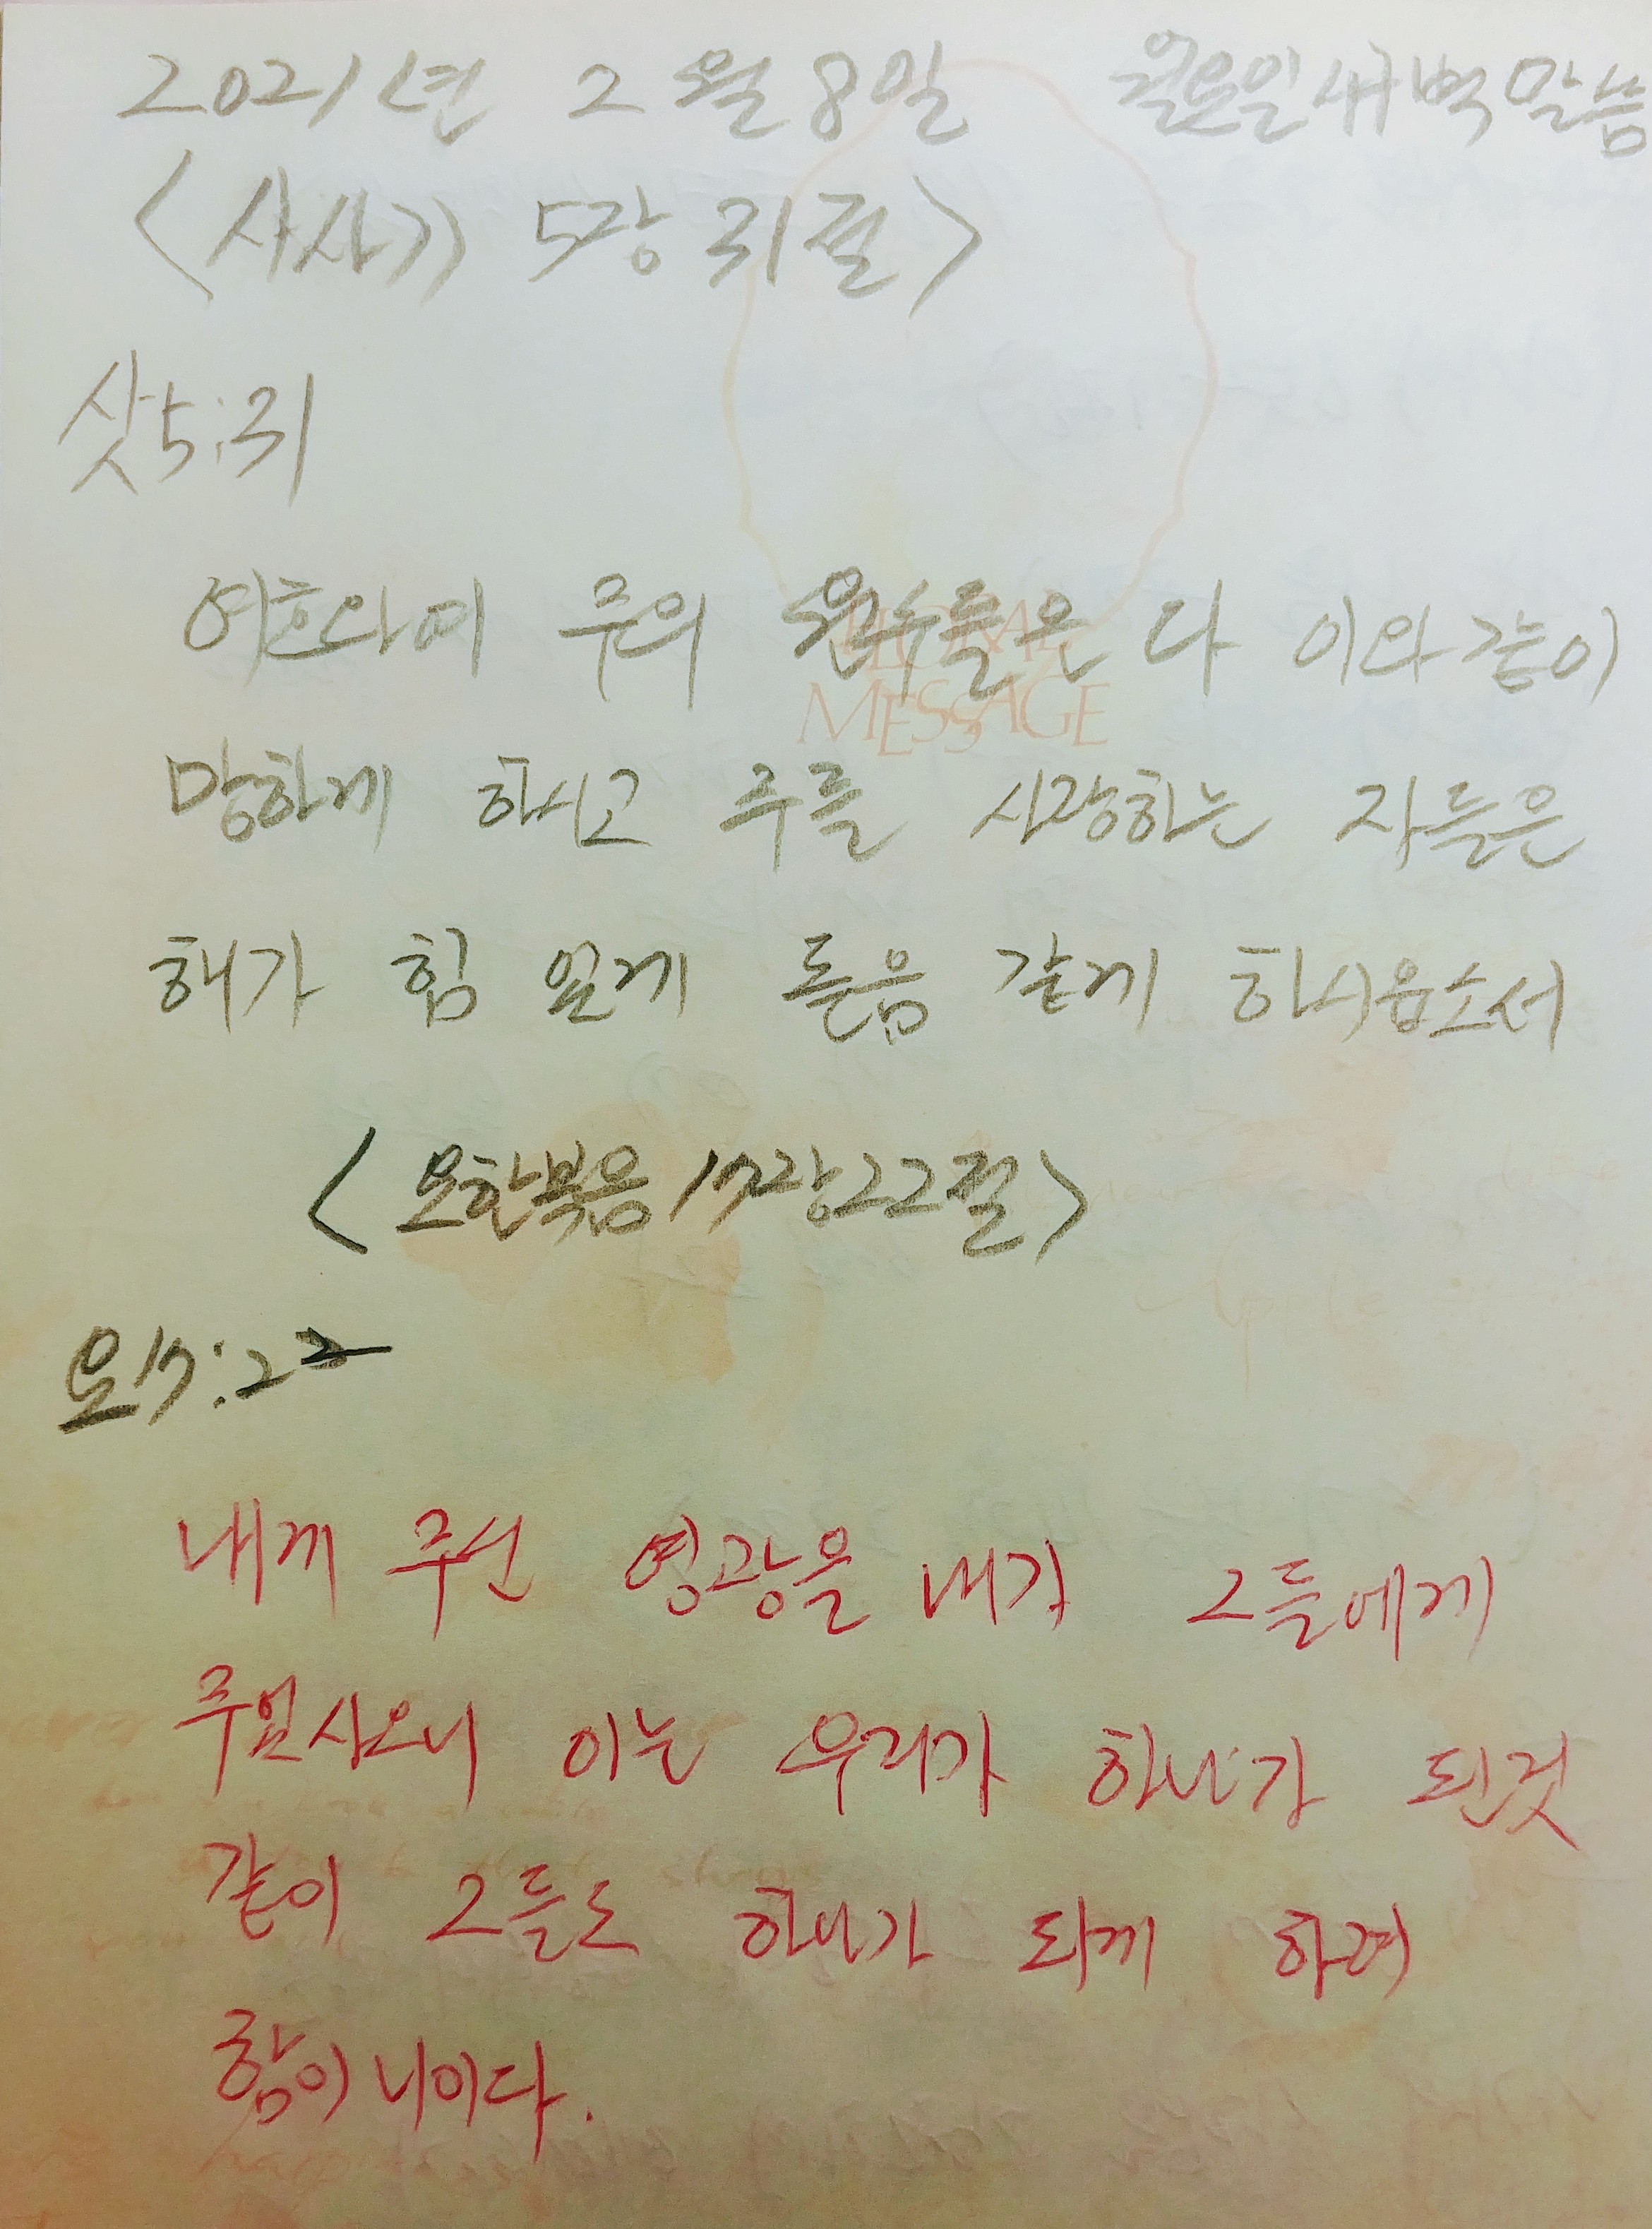 2021년 2월 8일 월요일 새벽말씀
<사사기 5장 31절>
삿5:31
여호와여 주의 원수들은 다 이와 같이
MESSAGE
망하게 하시고 주를 사랑하는 자들은
해가 힘 있게 돋음 같게 하시옵소서
<요한복음 17장 22절>
요17:22
내게 주신 영광을 내가 그들에게
주었사오니 이는 우리가 하나가 된것
같이 그들도 하나가 되게 하려
함이니이다.